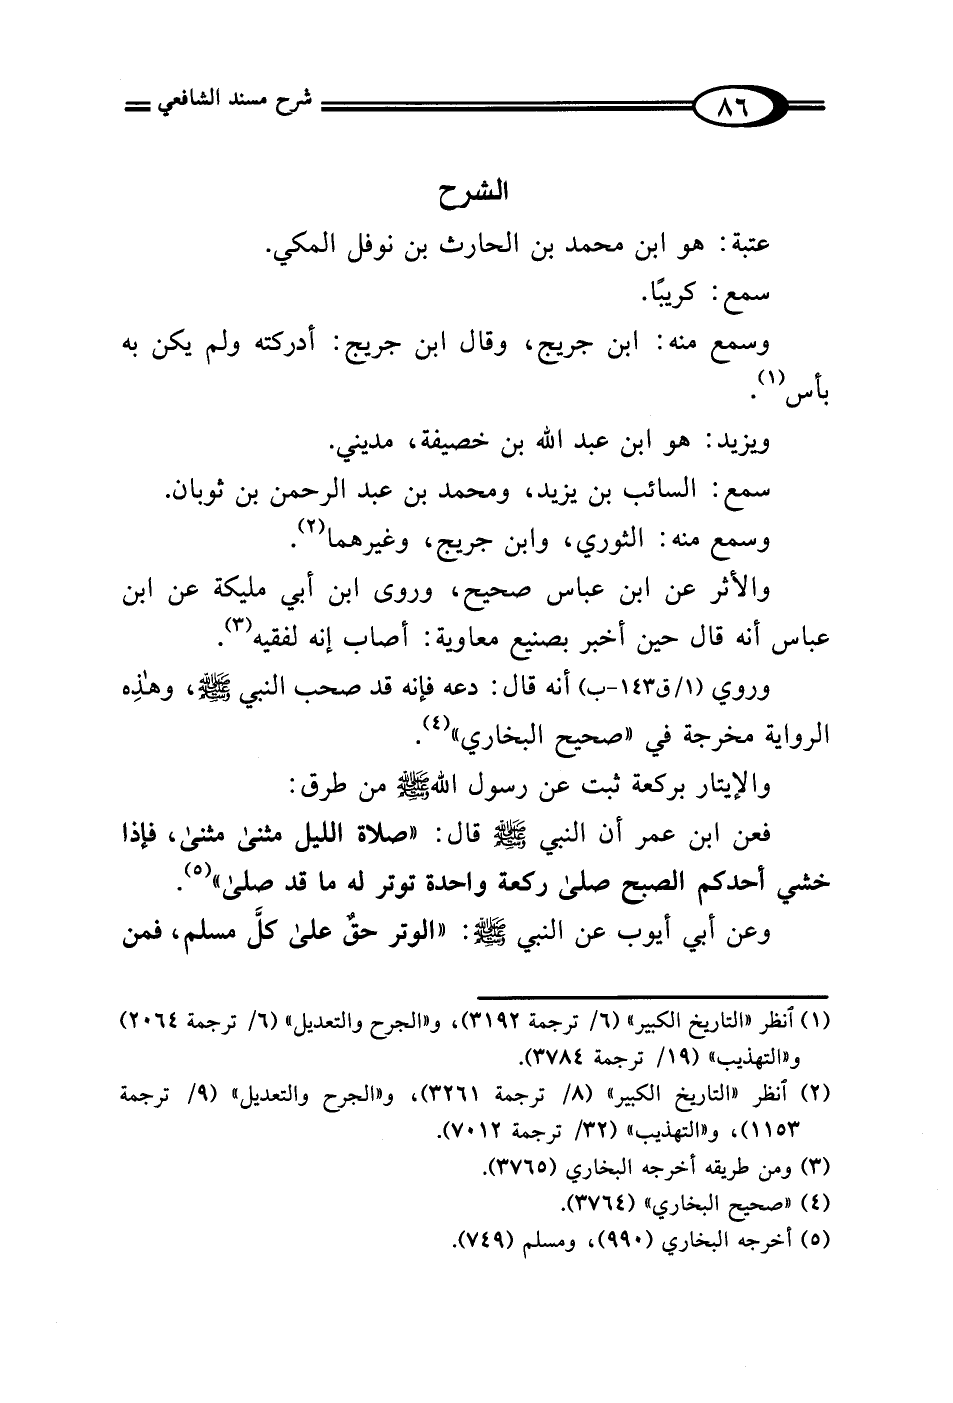 ٨٦ شرح مسند الشافعي
الشرح
عتبة: هو ابن محمد بن الحارث بن نوفل المكي.
سمع: كريبًا.
وسمع منه: ابن جريج، وقال ابن جريج: أدركته ولم يكن به
بأس(١).
ويزيد: هو ابن عبد الله بن خصيفة، مديني.
سمع: السائب بن يزيد، ومحمد بن عبد الرحمن بن ثوبان.
وسمع منه: الثوري، وابن جريج، وغيرهما(٢).
والأثر عن ابن عباس صحيح، وروى ابن أبي مليكة عن ابن
عباس أنه قال حين أخبر بصنيع معاوية: أصاب إنه لفقيه(٣).
وروي (١/ق١٤٣-ب) أنه قال: دعه فإنه قد صحب النبي ﷺ، وهذِه
الرواية مخرجة في «صحيح البخاري»(٤).
والإيتار بركعة ثبت عن رسول الله ﷺ من طرق:
فعن ابن عمر أن النبي ﷺ قال: «صلاة الليل مثنىٰ مثنىٰ، فإذا
خشي أحدكم الصبح صلىٰ ركعة واحدة توتر له ما قد صلىٰ»(٥).
وعن أبي أيوب عن النبي ﷺ: «الوتر حقٌ علىٰ كلَّ مسلم، فمن
(١) ٱنظر «التاريخ الكبير» (٦/ ترجمة ٣١٩٢)، و«الجرح والتعديل» (٦/ ترجمة ٢٠٦٤)
و«التهذيب» (١٩/ ترجمة ٣٧٨٤).
(٢) ٱنظر «التاريخ الكبير» (٨/ ترجمة ٣٢٦١)، و«الجرح والتعديل» (٩/ ترجمة
١١٥٣)، و«التهذيب» (٣٢/ ترجمة ٧٠١٢).
(٣) ومن طريقه أخرجه البخاري (٣٧٦٥).
(٤) «صحيح البخاري» (٣٧٦٤).
(٥) أخرجه البخاري (٩٩٠)، ومسلم (٧٤٩).